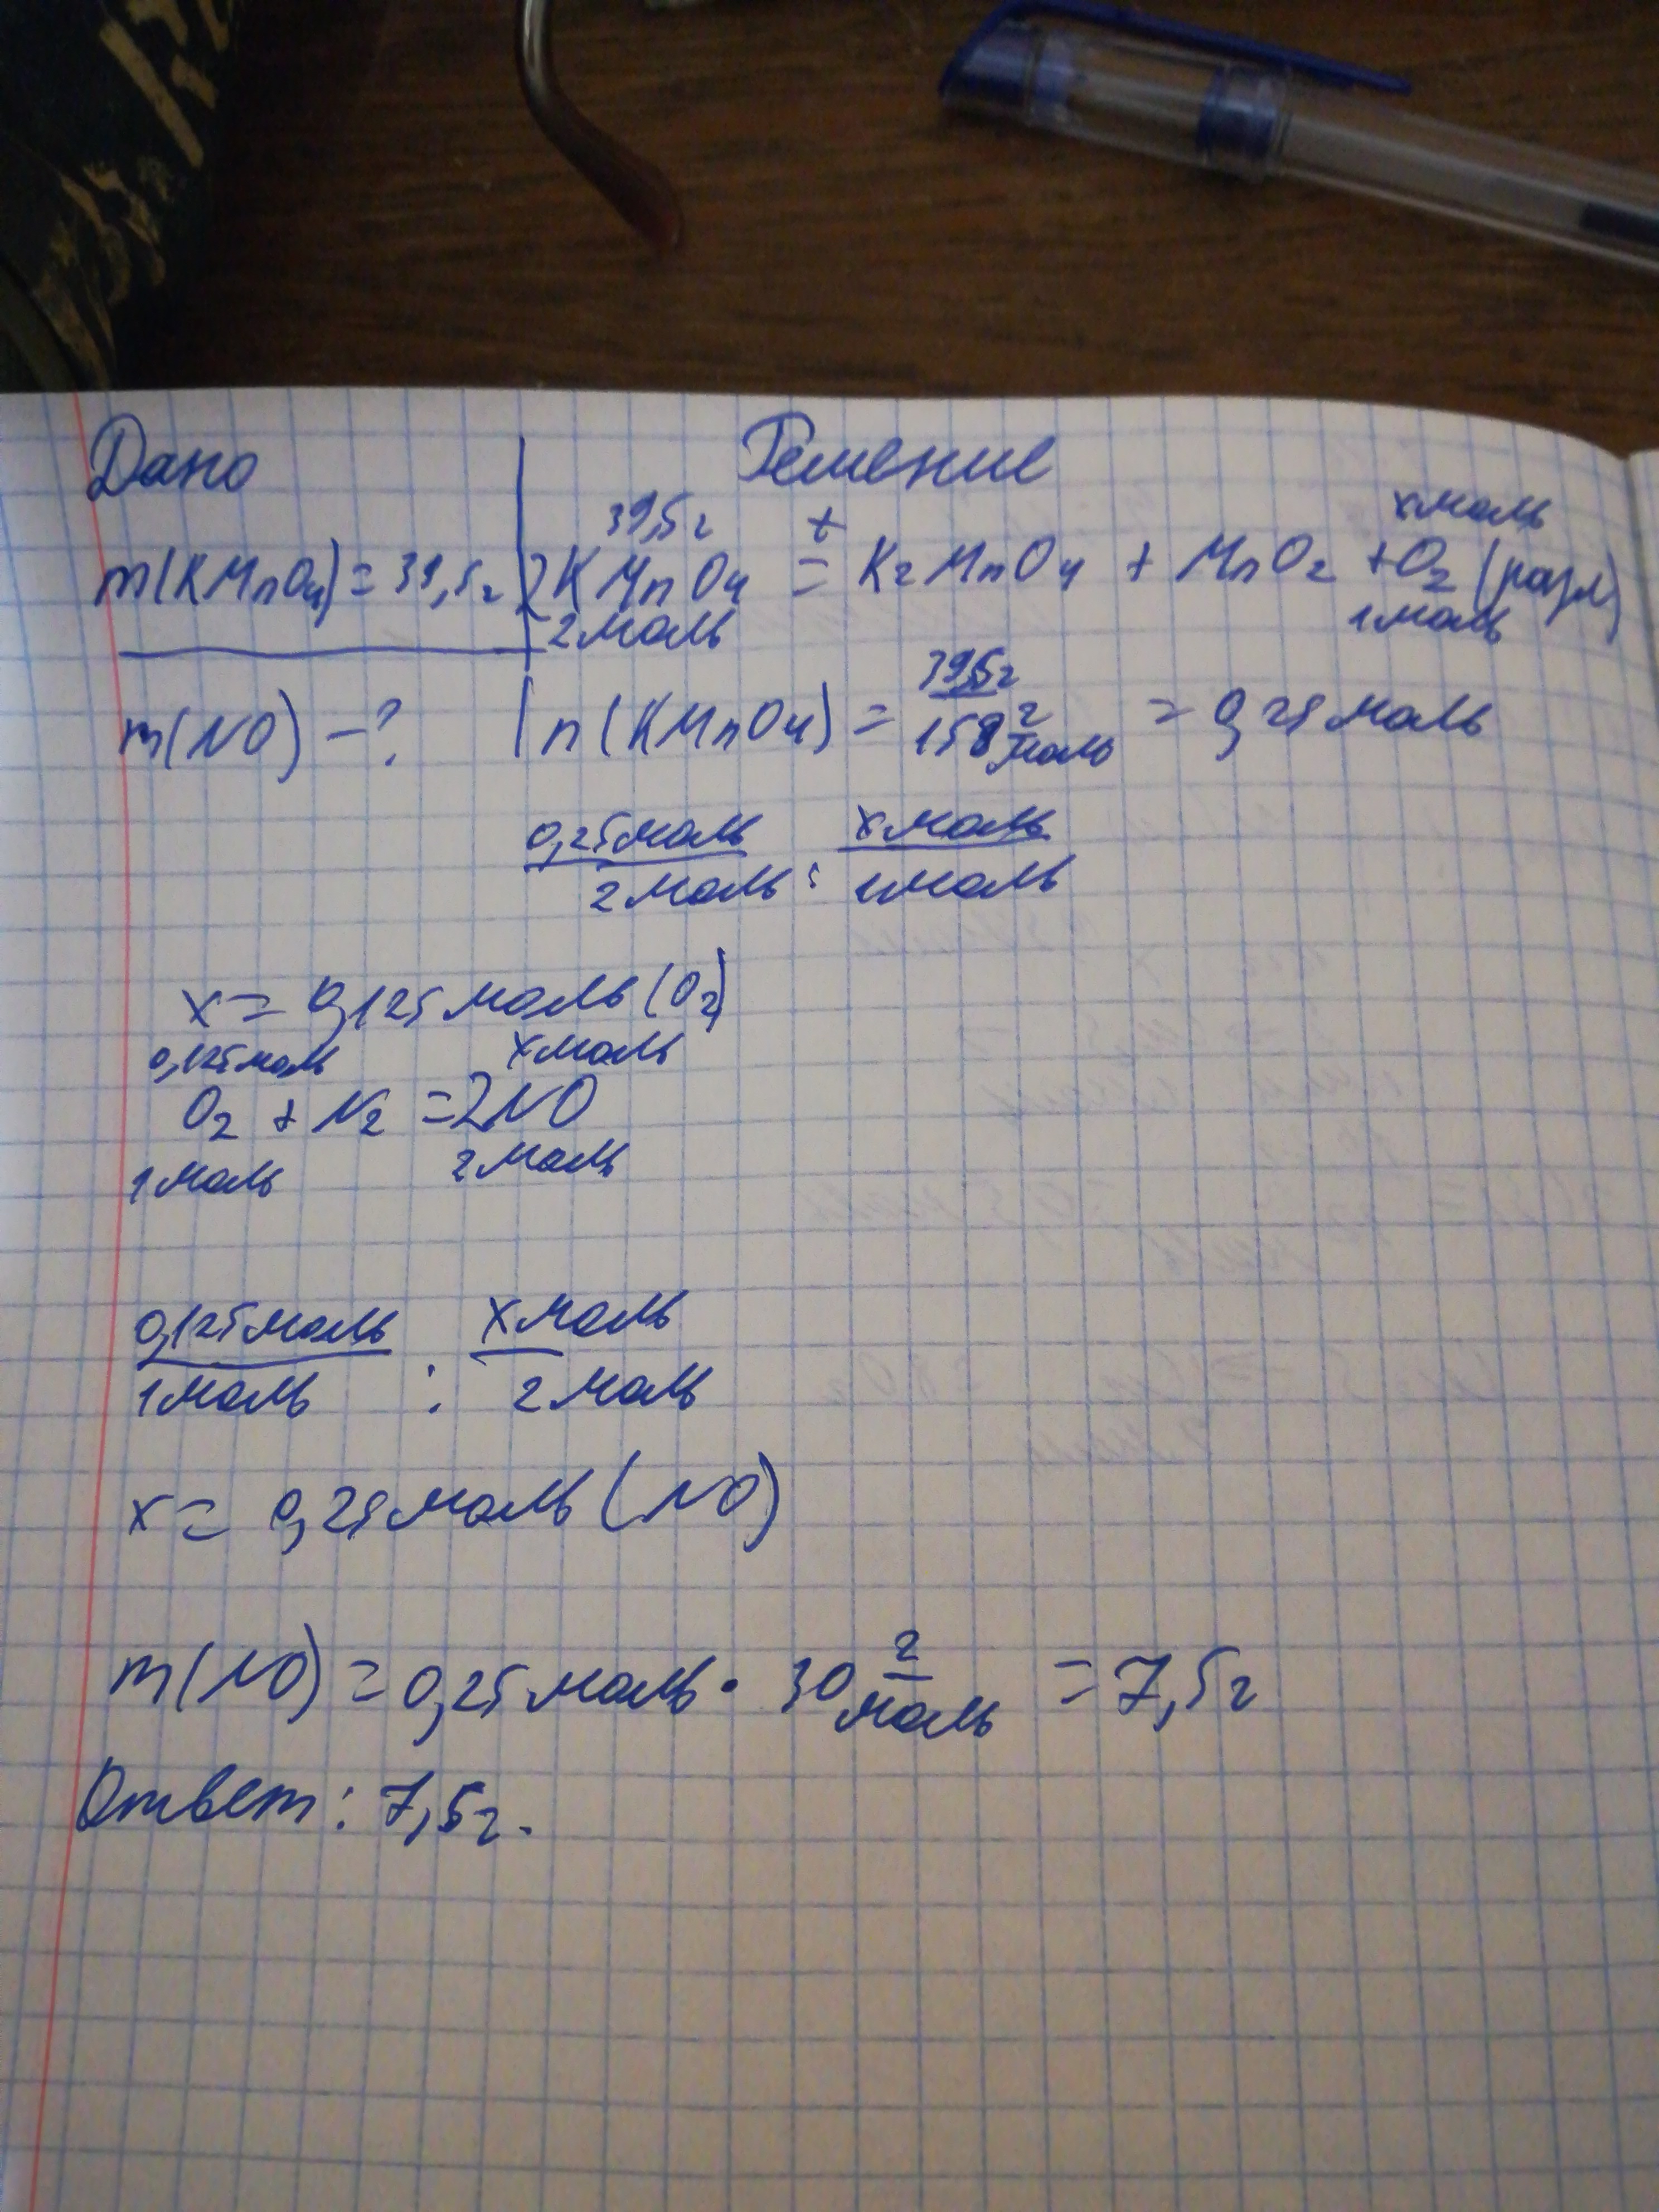 Дано Решение
39,5г t xмоль
m(KMnO4)=39,5г 2KMnO4 = K2MnO4 + MnO2 +O2 (разл)
2моль 1моль
m(NO) -? n(KMnO4) = 39,5г / 158 г/моль = 0,25 моль
0,25моль / 2моль : xмоль / 1моль
x = 0,125 моль (O2)
0,125моль xмоль
O2 + N2 =2NO
1моль 2моль
0,125моль / 1моль : xмоль / 2моль
x = 0,25 моль (NO)
m(NO) = 0,25 моль · 30 г/моль = 7,5г
Ответ: 7,5г.